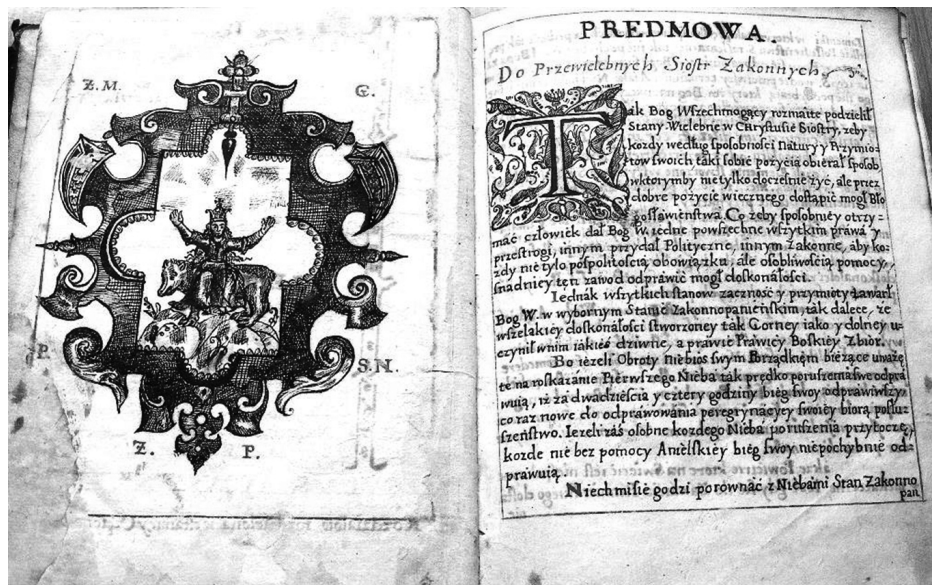 Z. M.
G.
P.
S. N.
Z. P.
PREDMOWA.
Do Przewielebnych Siostr Zakonnych
Tak Bog Wszechmogący rozmaite podzielił
Stany. Wielebne w Chrystusie Siostry, zeby
kozdy według sposobności Natury y Przymio=
tow swoich taki sobie pozycia obierał sposob
wktorymby nie tylko docześnie żyć, ale przez
dobre pozycie wiecznego dostąpić mogł Bło
gosławienstwa. Co żeby sposobniey otrzy=
mać człowiek dał Bog W. iedne powszechne wszytkim prawa y
przestrogi, innym przydał Polityczne, innym Zakonne, aby ko=
zdy nie tylo pospolitością obowiązku, ale osobliwością pomocy,
snadniey ten zawod odprawić mogł doskonałości.
Iednak wszytkich stanow zacność y przymioty zawarł
Bog W. w wybornym Stanie Zakonnopanienskim, tak dalece, że
wszelakiey doskonałości stworzoney tak Gorney iako y dolney u=
czynił wnim iakieś dziwne, a prawie Prawicy Boskiey Zbior.
Bo ieżeli Obroty niebios swym Porządkiem bieżące uważę
te na roskazanie Pierwszego Nieba tak prędko poruszenia swe odpra
wuią, iż za dwadzieścia y cztery godziny bieg swoy odprawiwszy,
co raz nowe do odprawowania peregrynacyey swoiey biorą posłu=
szeństwo. Ieżeli zás osobne kozdego Nieba poruszenia przytoczę,
kozde nie bez pomocy Anielskiey bieg swoy niepochybnie od=
prawuią.
Niech mi sie godzi porownać z Niebami Stan Zakonno
pan